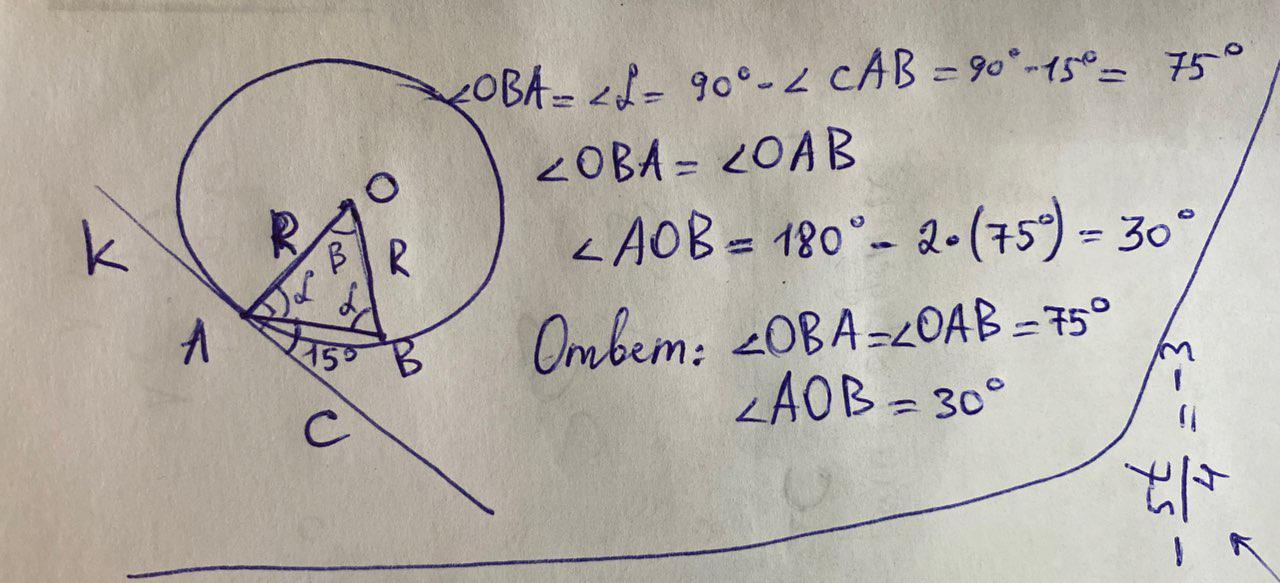 ∠OBA = ∠α = 90° - ∠CAB = 90° - 15° = 75°
∠OBA = ∠OAB
∠AOB = 180° - 2·(75°) = 30°
Ответ: ∠OBA = ∠OAB = 75°
∠AOB = 30°
O
K
R
β
R
α
α
A
15°
B
C